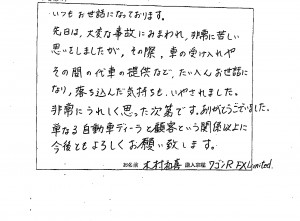 いつもお世話になっております。
先日は、大変な事故にみまわれ、非常に苦しい
思いをしましたが、その際、車の受け入れや
その間の代車の提供など、たいへんお世話に
なり、落ち込んだ気持ちも、いやされました。
非常にうれしく思った次第です。ありがとうございました。
単なる自動車ディーラと顧客という関係以上に
今後ともよろしくお願い致します。
お名前 木村和喜 購入車種 ワゴンR FX Limited.